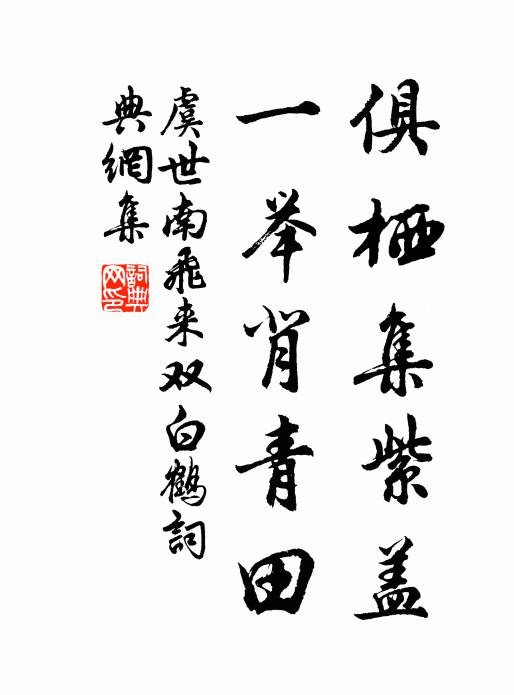 俱栖集紫盖
一举背青田
虞世南飛来双白鶴詞
典網集
詞典
网印